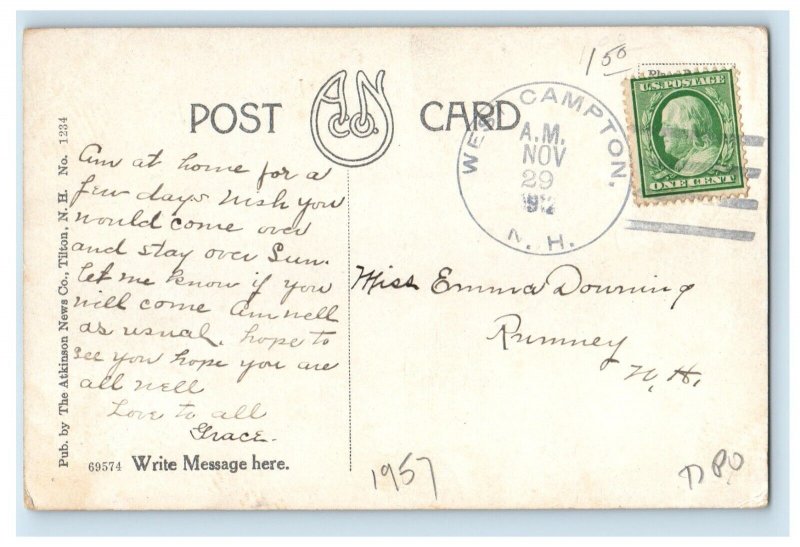 1 50
POST CARD
A.N.
CO.
Place
U.S. POSTAGE
ONE CENT
WEST CAMPTON,
A.M.
NOV
29
1912
N. H.
Am at home for a
few days Wish you
would come over
and stay over Sun.
let me know if you
will come Am well
as usual, hope to
see you hope you are
all well
Love to all
Grace.
Miss Emma Downing
Rumney
N. H.
Pub. by The Atkinson News Co., Tilton, N. H. No. 1234
69574 Write Message here.
1957
DPO